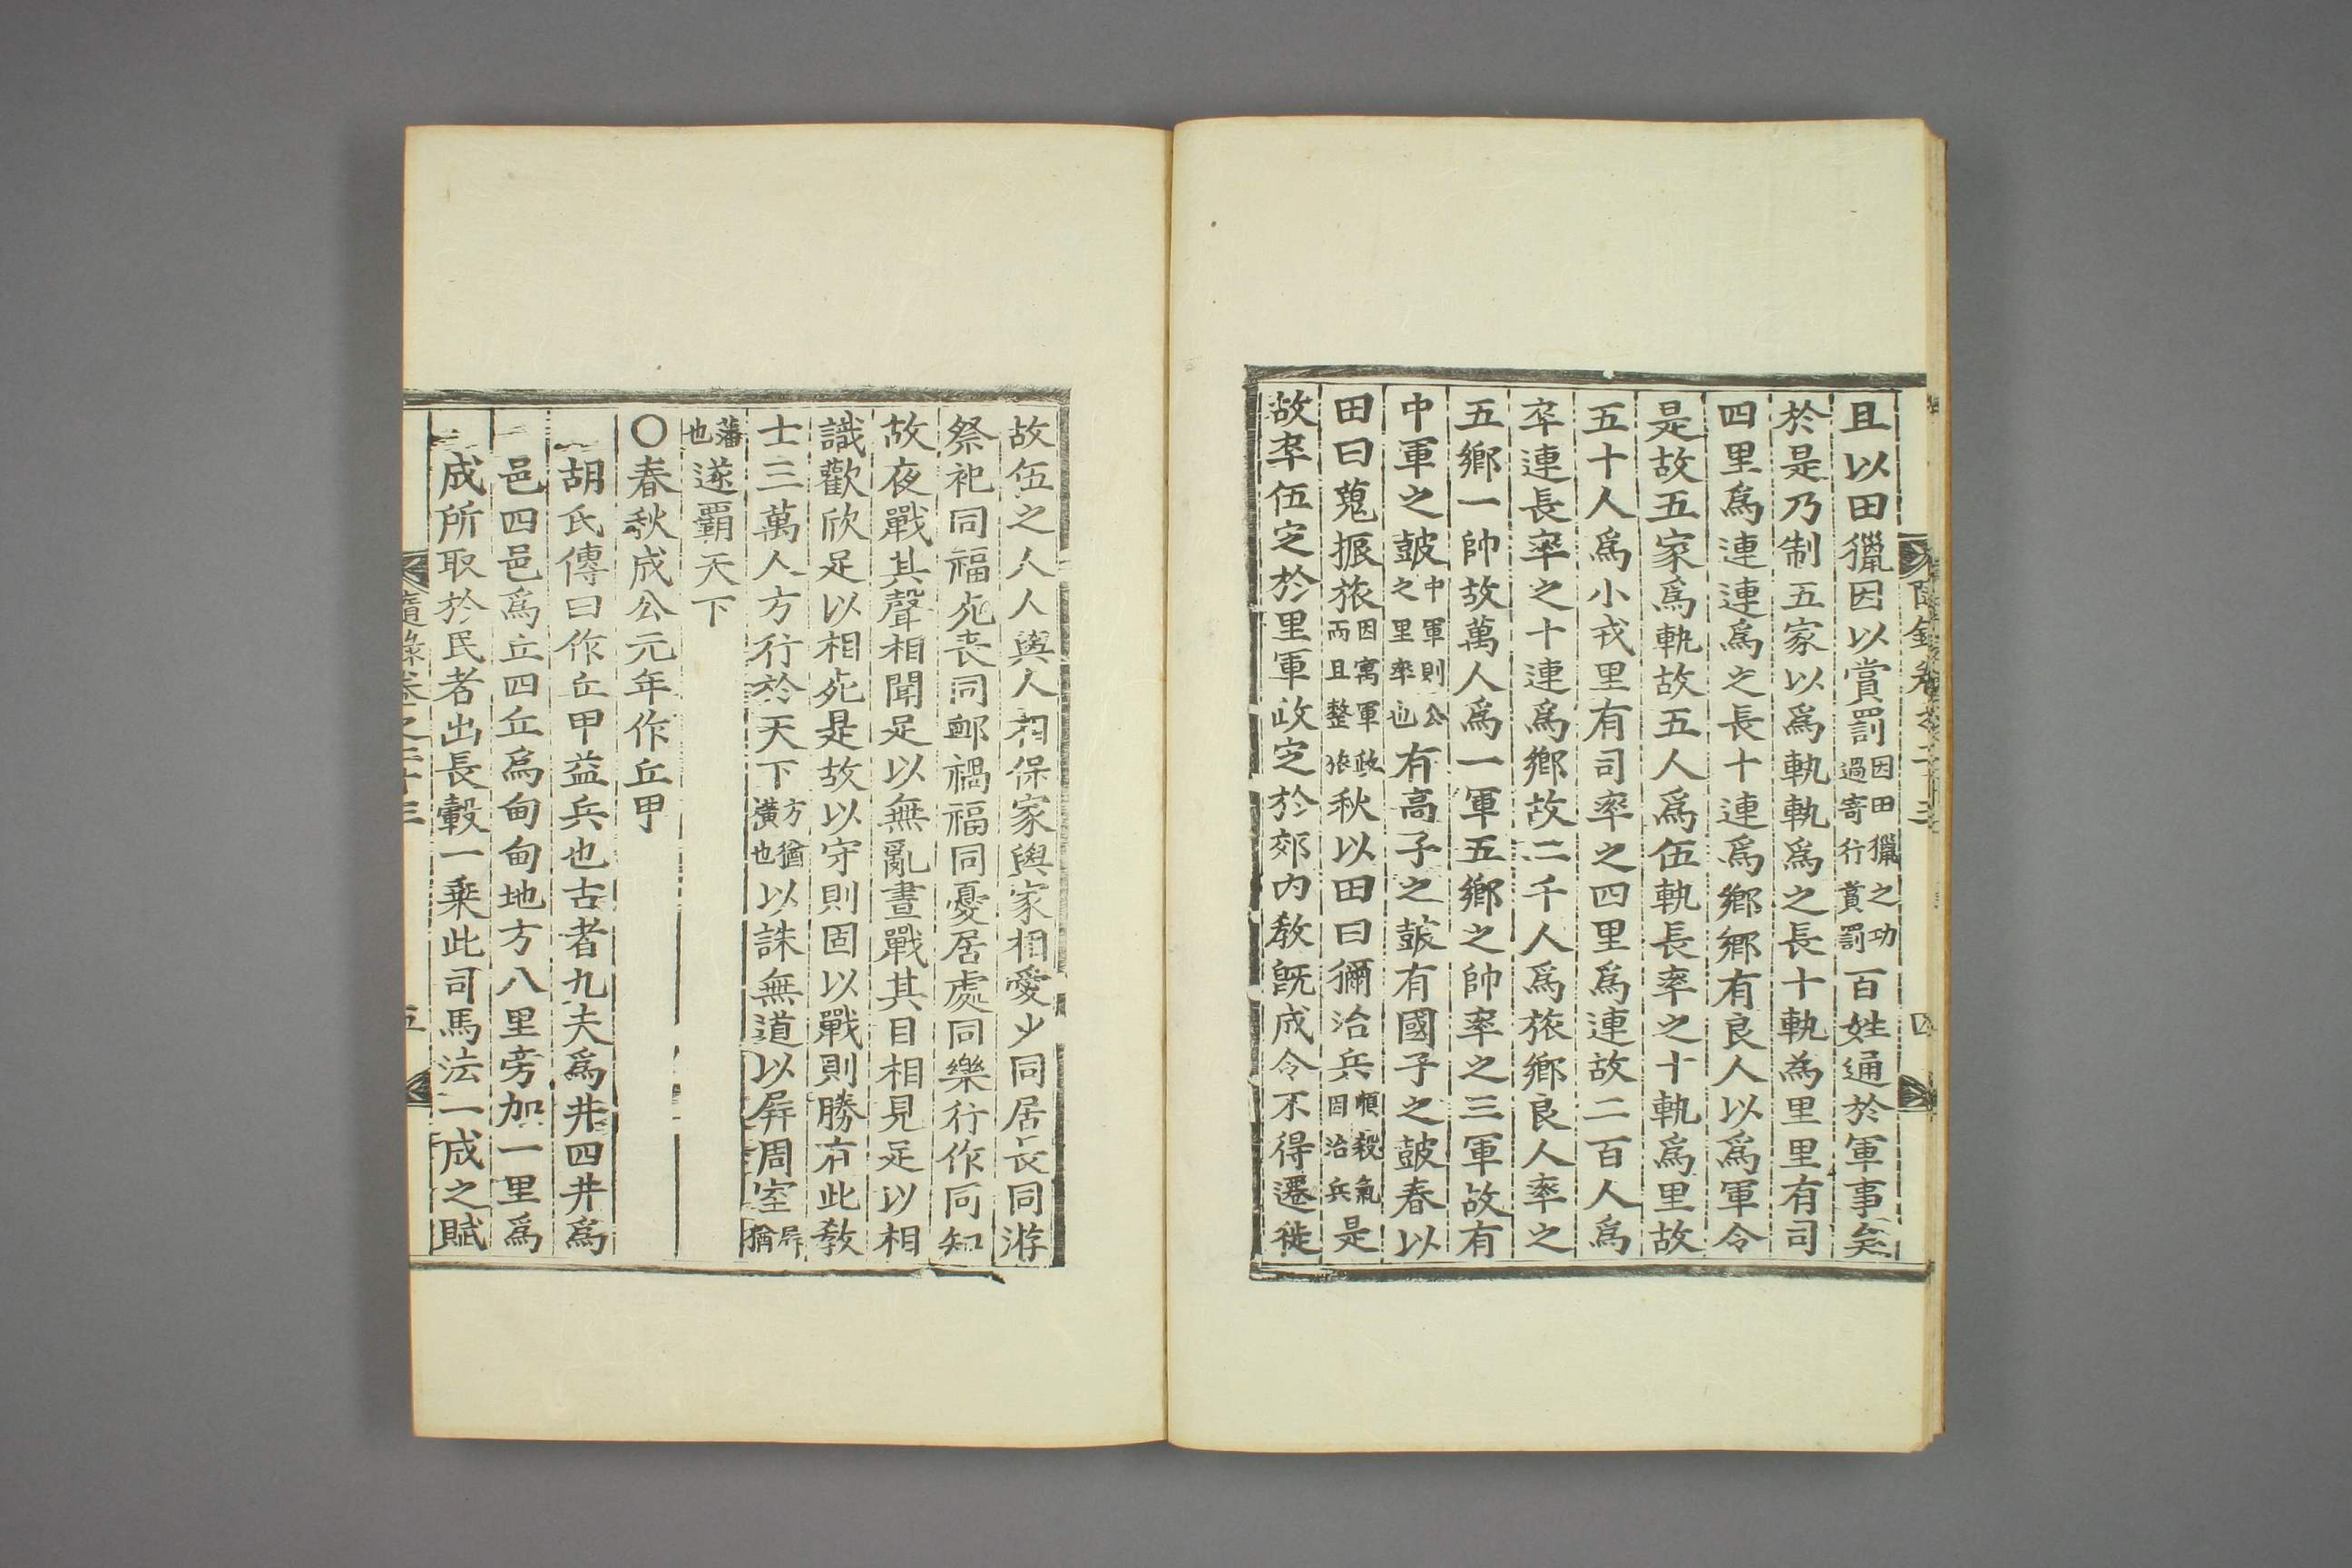 且以田獵因以賞罰因田獵之功過寄行賞罰百姓通於軍事矣
於是乃制五家以爲軌軌爲之長十軌為里里有司
四里爲連連爲之長十連爲鄉鄉有良人以爲軍令
是故五家爲軌故五人爲伍軌長率之十軌爲里故
五十人爲小戎里有司率之四里爲連故二百人爲
卒連長率之十連爲鄉故二千人爲旅鄉良人率之
五鄉一帥故萬人爲一軍五鄉之帥率之三軍故有
中軍之鼓中軍則公之里率也有高子之鼓有國子之鼓春以
田曰蒐振旅因寓軍政而且整旅秋以田曰獮治兵順殺氣因治兵是
故卒伍定於里軍政定於郊內教既成令不得遷徙
故伍之人人與人相保家與家相愛少同居長同游
祭祀同福死喪同郵禍福同憂居處同樂行作同知
故夜戰其聲相聞足以無亂晝戰其目相見足以相
識歡欣足以相死是故以守則固以戰則勝有此教
士三萬人方行於天下方猶橫也以誅無道以屛周室屛猶
藩也遂覇天下
〇春秋成公元年作丘甲
胡氏傳曰作丘甲益兵也古者九夫爲井四井爲
邑四邑爲丘四丘爲甸甸地方八里旁加一里爲
成所取於民者出長轂一乗此司馬法一成之賦
隨錄卷之二十三
五